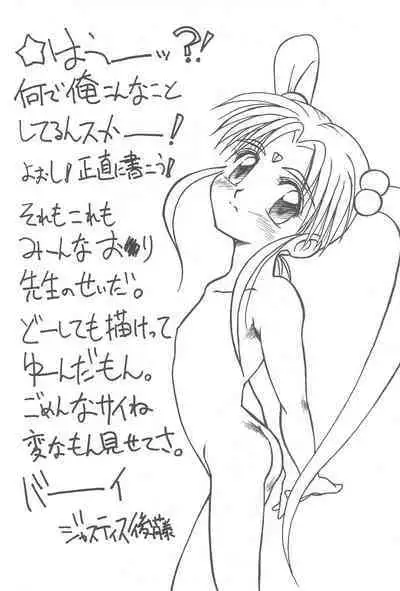 ☆はうーーッ?!
何で俺こんなこと
してるんスかーー!
よおし!正直に書こう!
それもこれも
みーんなお り
先生のせいだ。
どーしても描けって
ゆーんだもん。
ごめんなサイね
変なもん見せてさ。
バーーイ
ジャスティス後藤